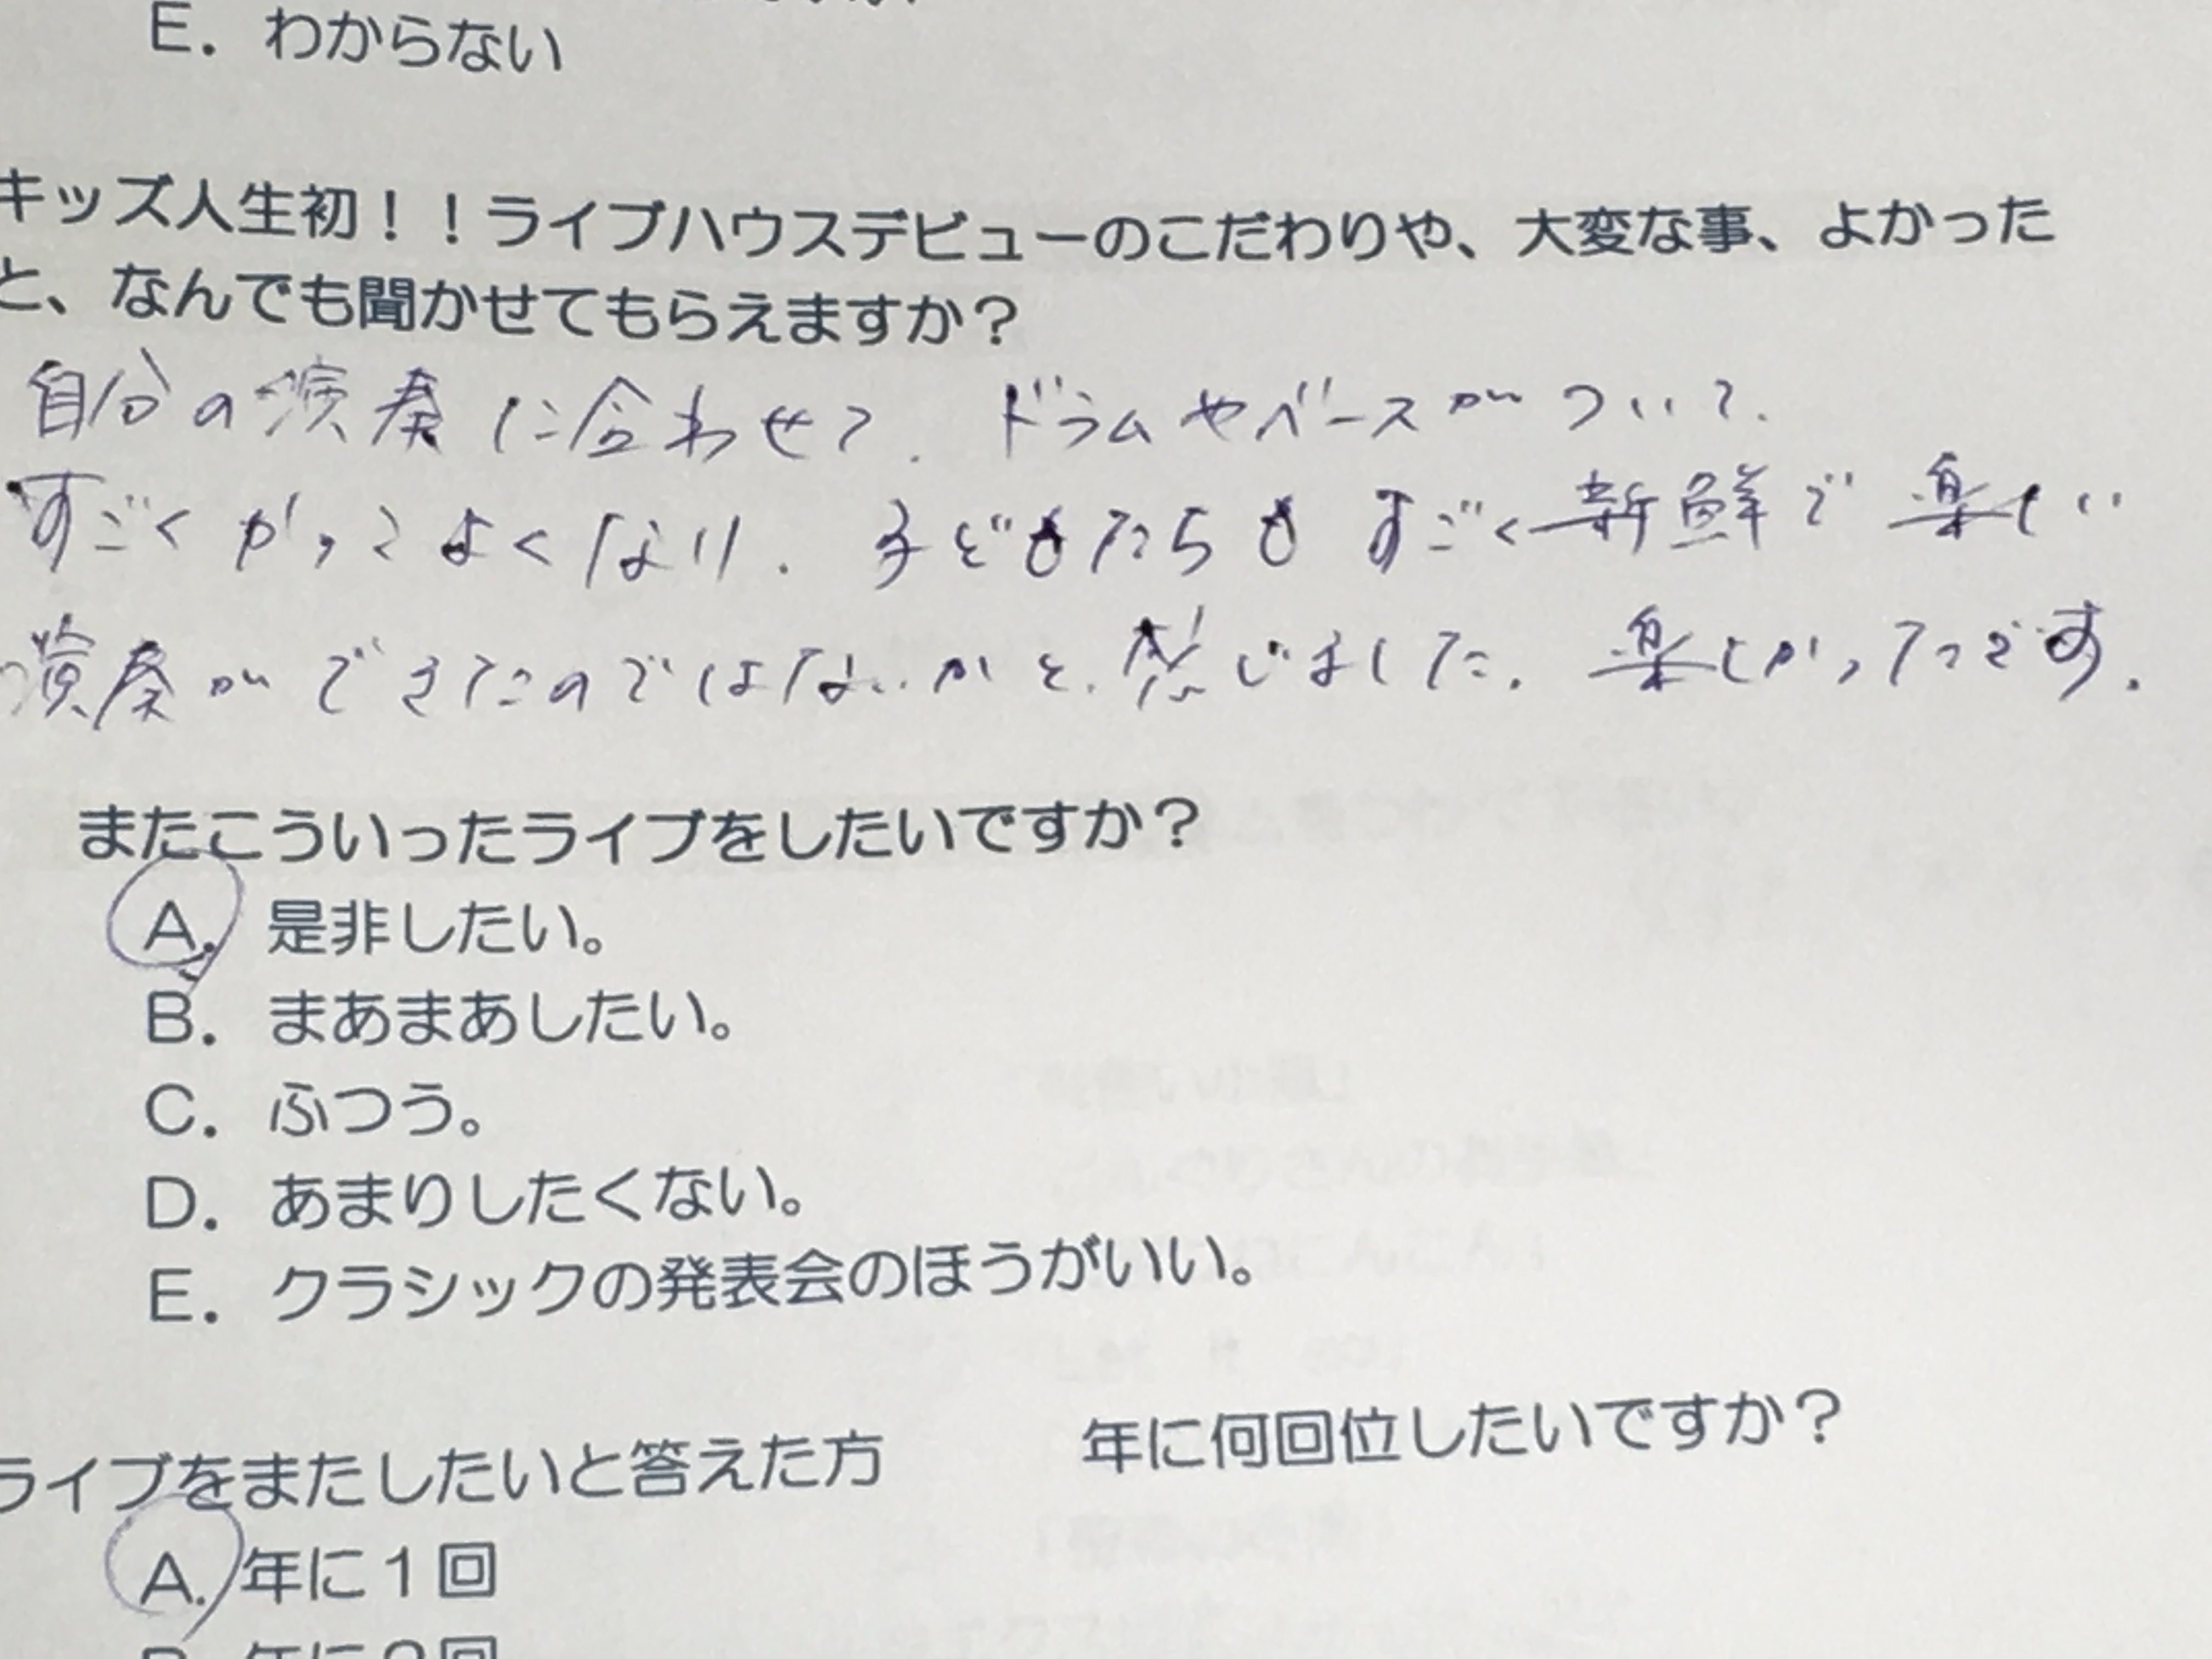 E. わからない
キッズ人生初！！ライブハウスデビューのこだわりや、大変な事、よかった
と、なんでも聞かせてもらえますか？
自分の演奏に合わせて、ドラムやベースがついて、
すごくかっこよくなり、子どもたちもすごく新鮮で楽しい
演奏ができたのではないかと、感じました。楽しかったです。
またこういったライブをしたいですか？
A. 是非したい。
B. まあまあしたい。
C. ふつう。
D. あまりしたくない。
E. クラシックの発表会のほうがいい。
ライブをまたしたいと答えた方 年に何回位したいですか？
A. 年に１回
B. 年に２回